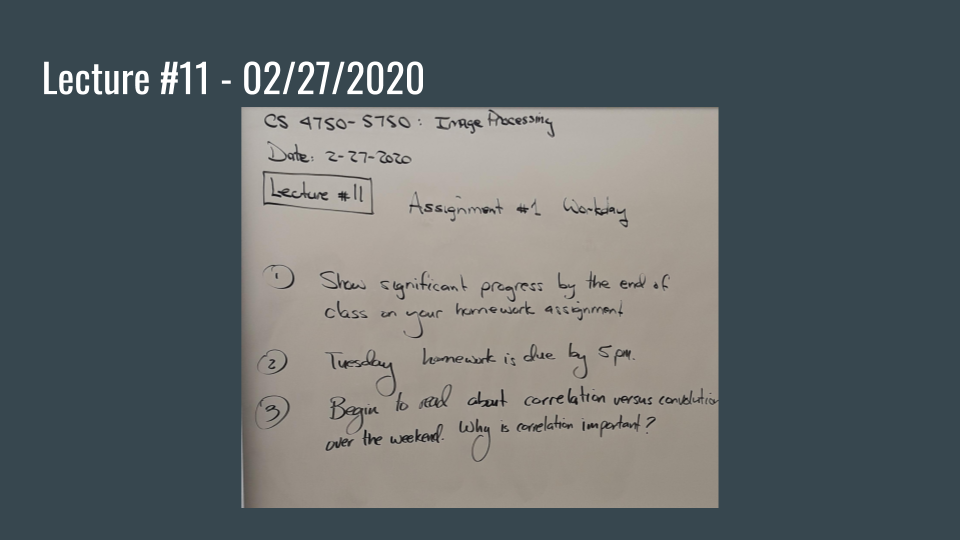 Lecture #11 - 02/27/2020
CS 4750-5750: Image Processing
Date: 2-27-2020
Lecture #11
Assignment #1 Workday
1 Show significant progress by the end of
class on your homework assignment
2 Tuesday homework is due by 5pm.
3 Begin to read about correlation versus convolution
over the weekend. Why is correlation important?